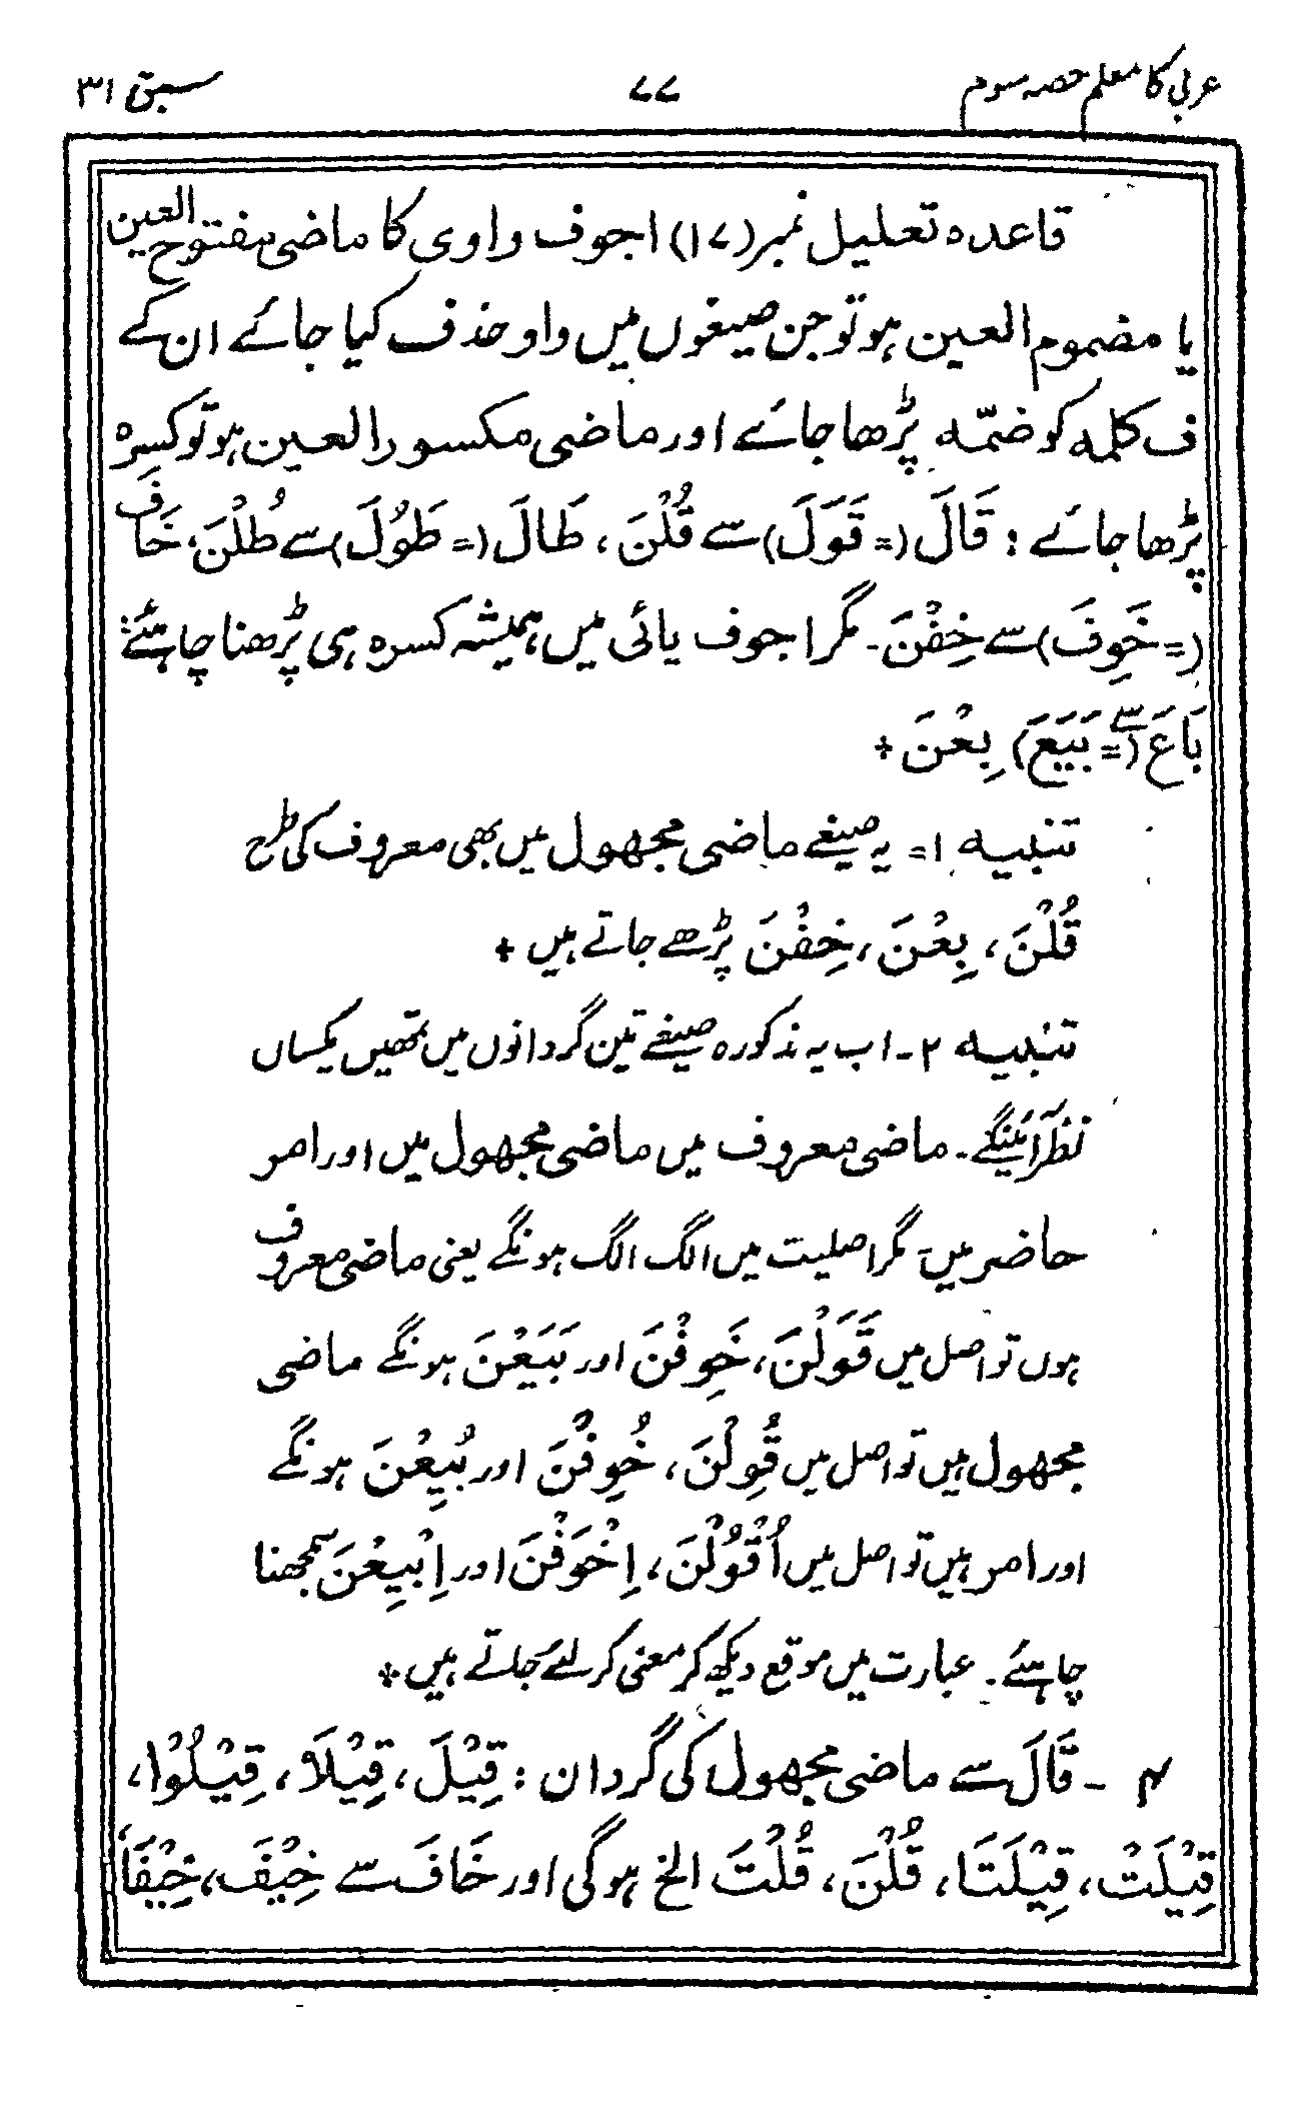 عربی کا معلم حصہ سوم ۷۷ سبق ۳۱
قاعدہ تعلیل نمبر (۱۷) اجوف واوی کا ماضی مفتوح العین
یا مضموم العین ہو تو جن صیغوں میں واو حذف کیا جائے ان کے
ف کلمہ کو ضمّہ پڑھا جائے اور ماضی مکسور العین ہو تو کسرہ
پڑھا جائے : قَالَ (= قَوَلَ) سے قُلْنَ ، طَالَ (= طَوُلَ) سے طُلْنَ، خَافَ
(= خَوِفَ) سے خِفْنَ ۔ مگر اجوف یائی میں ہمیشہ کسرہ ہی پڑھنا چاہئے:
بَاعَ (= بَيَعَ) سے بِعْنَ +
تنبیہ ۱= یہ صیغے ماضی مجھول میں بھی معروف کی طرح
قُلْنَ ، بِعْنَ ، خِفْنَ پڑھے جاتے ہیں +
تنبیہ ۲ ۔ اب یہ مذکورہ صیغے تین گردانوں میں تمھیں یکساں
نظر آئینگے ۔ ماضی معروف میں ماضی مجھول میں اور امر
حاضر میں ۔ مگر اصلیت میں الگ الگ ہونگے یعنی ماضی معروف
ہوں تو اصل میں قَوَلْنَ ، خَوِفْنَ اور بَيَعْنَ ہونگے ماضی
مجھول ہیں تو اصل میں قُوِلْنَ ، خُوِفْنَ اور بُيِعْنَ ہونگے
اور امر ہیں تو اصل میں اُقْوُلْنَ ، اِخْوَفْنَ اور اِبْيِعْنَ سمجھنا
چاہئے ۔ عبارت میں موقع دیکھ کر معنی کر لئے جاتے ہیں +
۴ ۔ قَالَ سے ماضی مجھول کی گردان : قِيْلَ ، قِيْلَا ، قِيْلُوْا ،
قِيْلَتْ ، قِيْلَتَا ، قُلْنَ ، قُلْتَ الخ ہوگی اور خَافَ سے خِيْفَ ، خِيْفَا